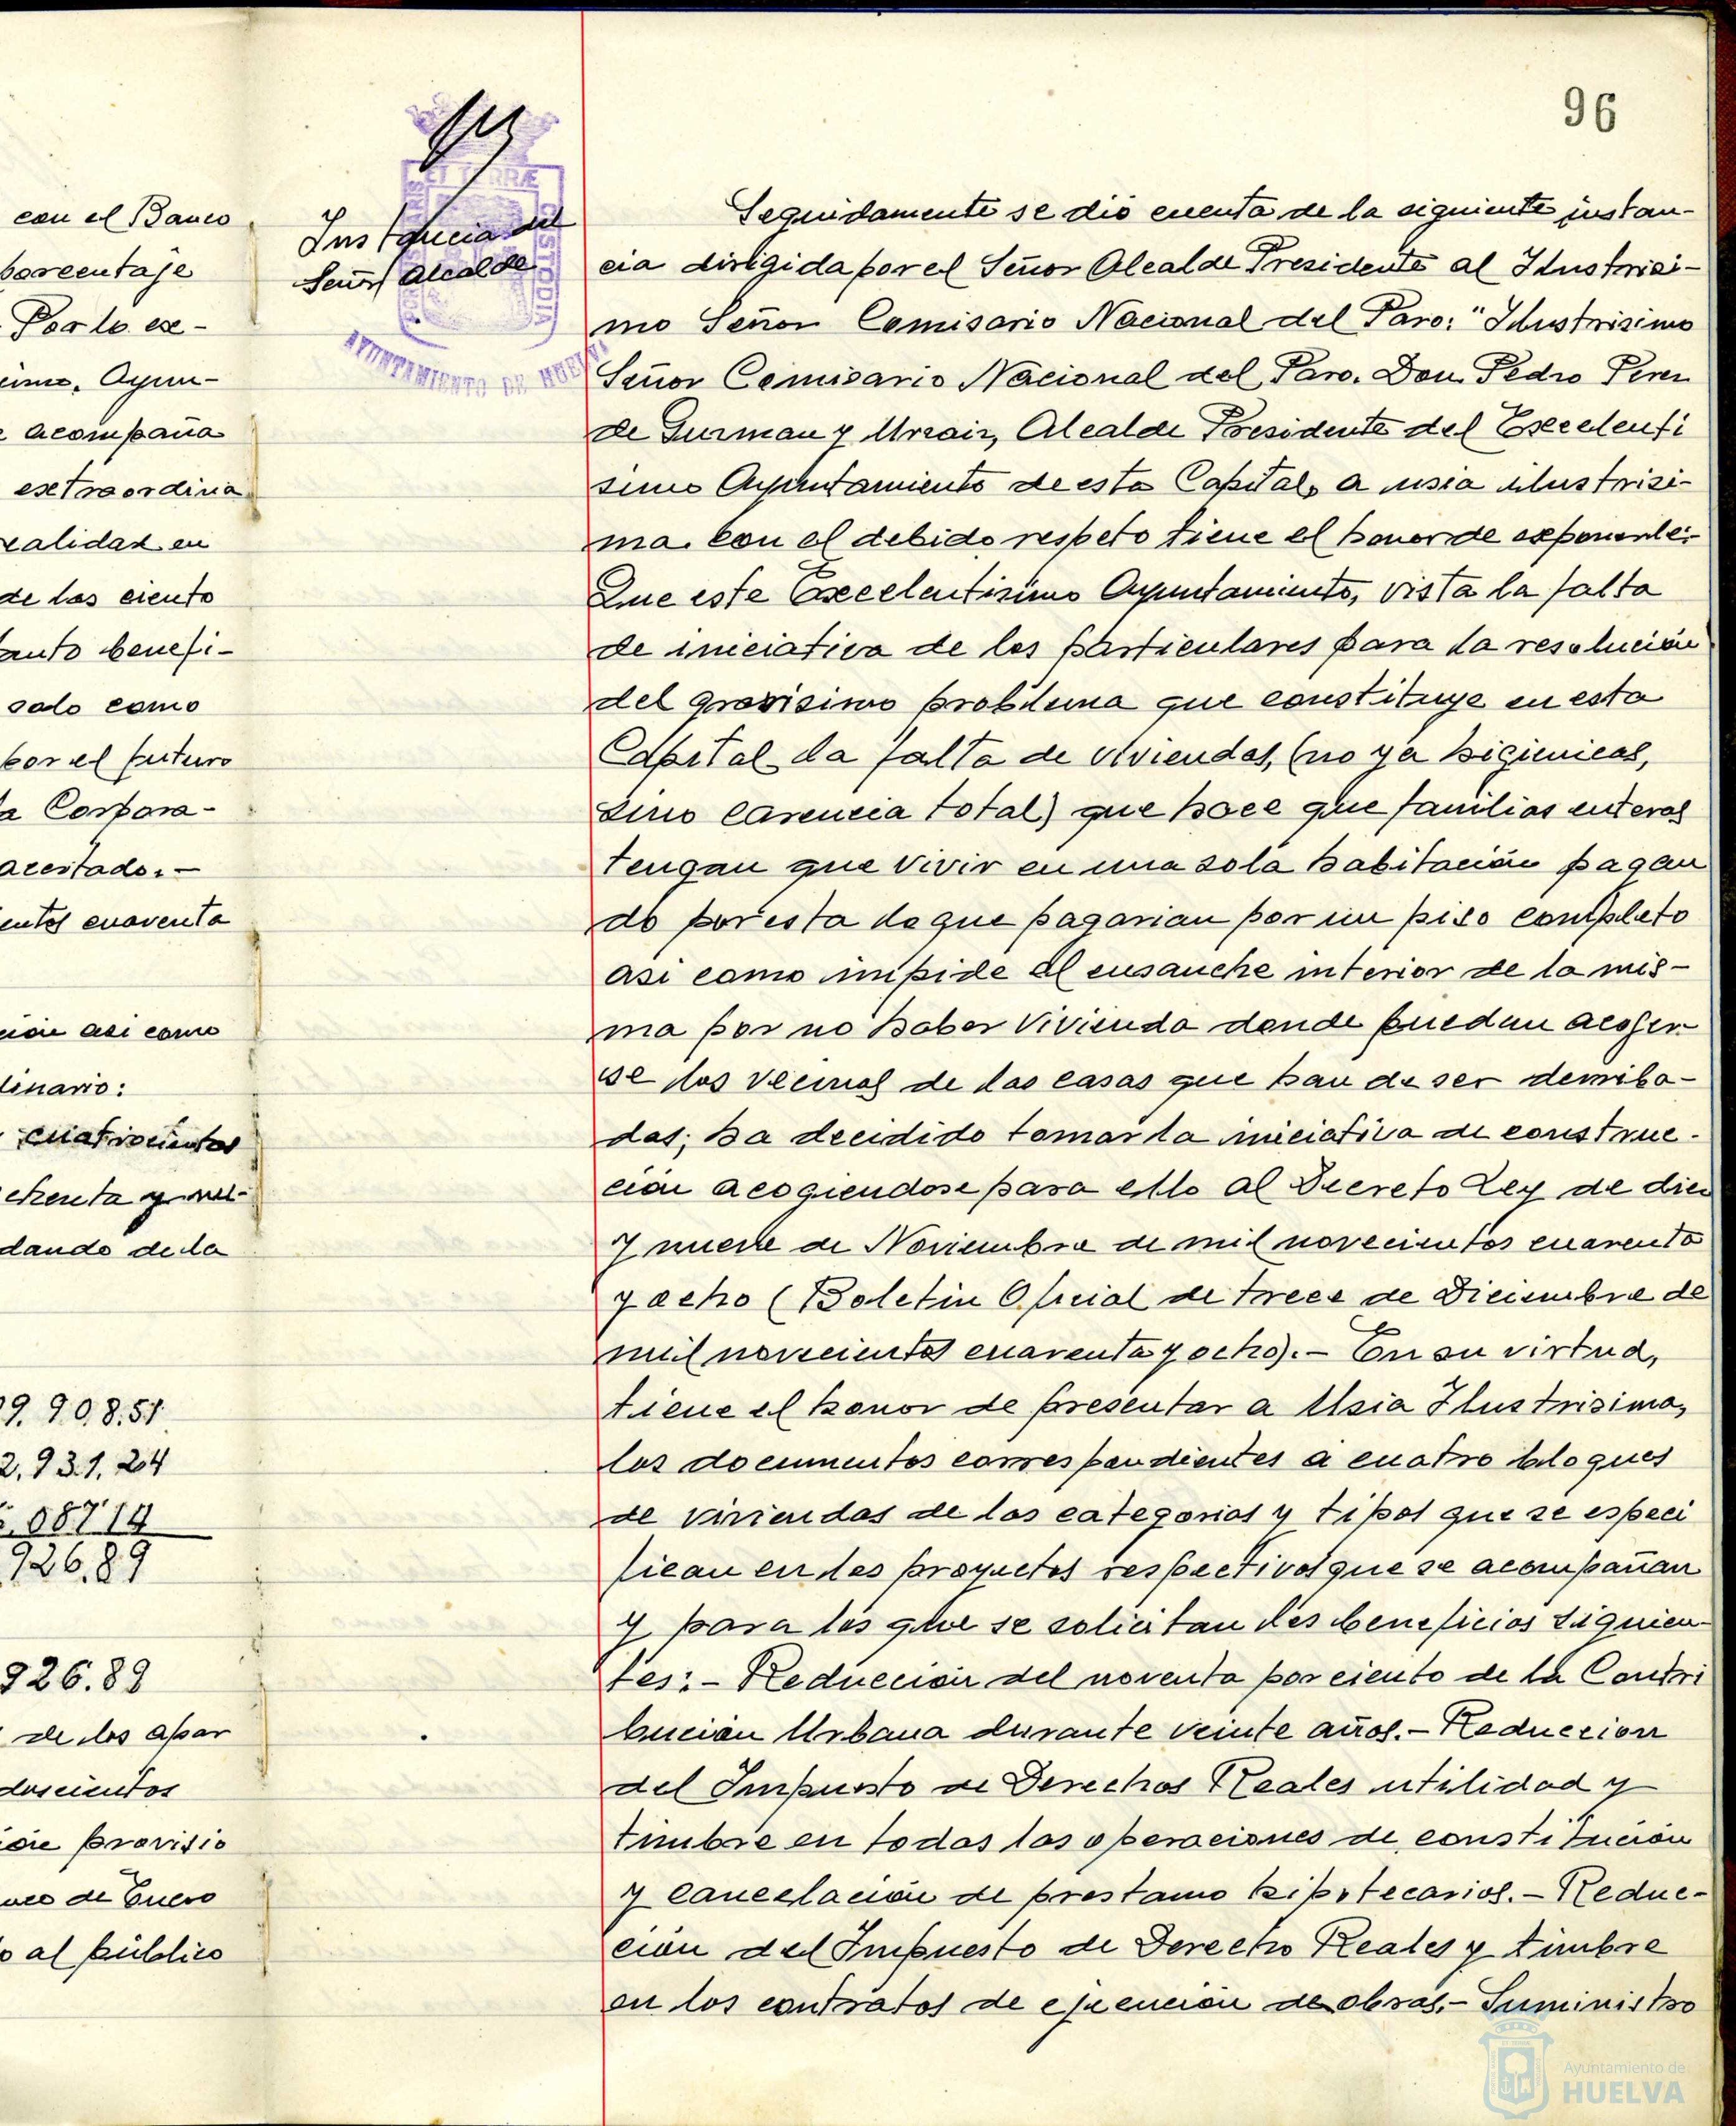 con el Banco
porcentaje
Por lo ex-
cimo. Ayun-
e acompaña
extraordina
calidad en
de los ciento
anto benefi-
solo como
por el futuro
a Corpora-
acertado.-
entos cuarenta
ción asi como
dinario:
cuatrocientos
chenta y
dando de la
9.908.51
2.931.24
087 14
926.89
926.89
de los apar
doscientos
ión provisio
de Enero
o al público
Instancia del
Señor Alcalde
ET TERRÆ
CUSTODIA
AYUNTAMIENTO DE HUELVA
96
Seguidamente se dió cuenta de la siguiente instan-
cia dirigida por el Señor Alcalde Presidente al Ilustrisi-
mo Señor Comisario Nacional del Paro: "Ilustrisimo
Señor Comisario Nacional del Paro. Don Pedro Perez
de Guzman y Urzaiz, Alcalde Presidente del Excelenti
simo Ayuntamiento de esta Capital, a usia ilustrisi-
ma con el debido respeto tiene el honor de exponerle:-
Que este Excelentisimo Ayuntamiento, vista la falta
de iniciativa de los particulares para la resolución
del gravisimo problema que constituye en esta
Capital la falta de viviendas, (no ya higienicas,
sino carencia total) que hace que familias enteras
tengan que vivir en una sola habitación pagan
do por esta lo que pagarian por un piso completo
asi como impide el ensanche interior de la mis-
ma por no haber vivienda donde puedan acoger-
se los vecinos de las casas que han de ser derriba-
das; ha decidido tomar la iniciativa de construc-
ción acogiendose para ello al Decreto Ley de diez
y nueve de Noviembre de mil novecientos cuarenta
y ocho (Boletin Oficial de trece de Diciembre de
mil novecientos cuarenta y ocho).- En su virtud,
tiene el honor de presentar a Usia Ilustrisima,
los documentos correspondientes a cuatro bloques
de viviendas de las categorias y tipos que se especi
fican en los proyectos respectivos que se acompañan
y para los que se solicitan los beneficios siguien-
tes:- Reducción del noventa por ciento de la Contri
bución Urbana durante veinte años.- Reduccion
del Impuesto de Derechos Reales utilidad y
timbre en todas las operaciones de constitución
y cancelación de prestamo hipotecarios.- Reduc-
ción del Impuesto de Derecho Reales y timbre
en los contratos de ejecución de obras.- Suministro
Ayuntamiento de
HUELVA